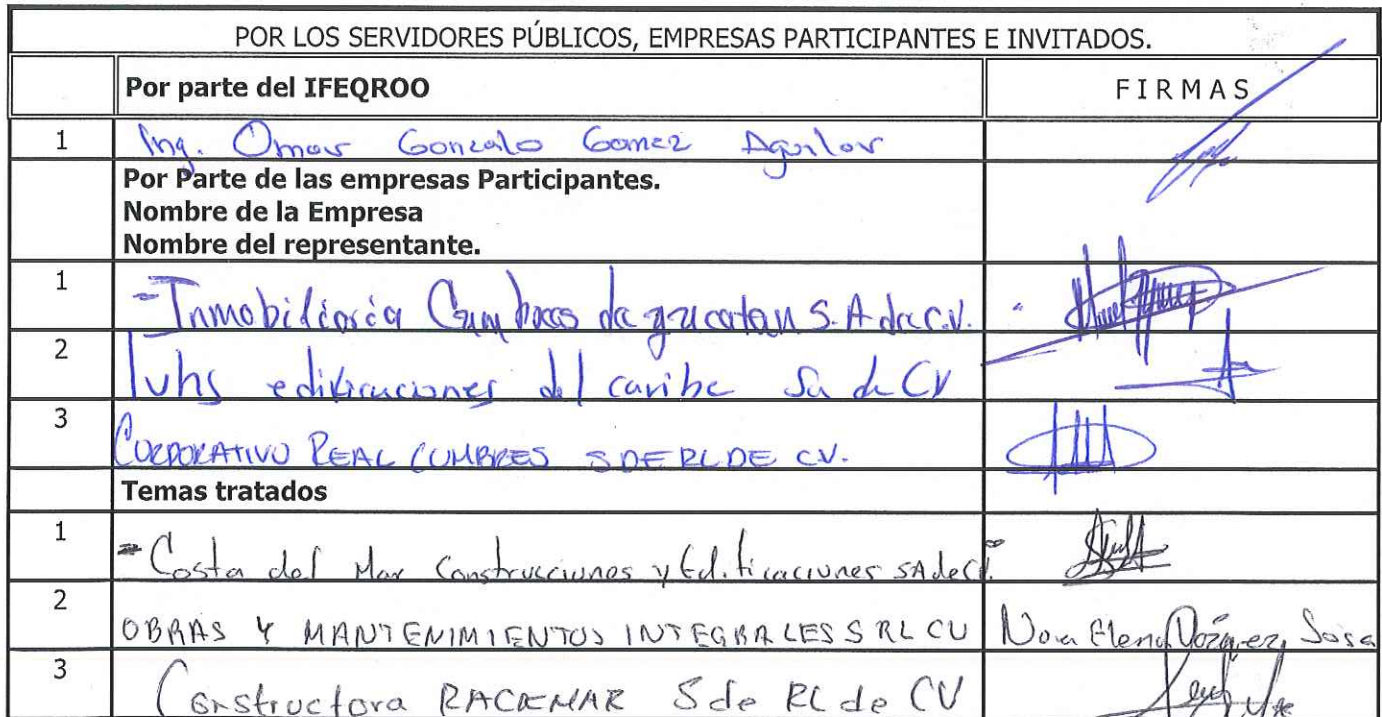 POR LOS SERVIDORES PÚBLICOS, EMPRESAS PARTICIPANTES E INVITADOS.
Por parte del IFEQROO FIRMAS
1 Ing. Omar Gonzalo Gomez Aguilar
Por Parte de las empresas Participantes.
Nombre de la Empresa
Nombre del representante.
1 - Inmobiliaria de yucatan S.A de C.V.
2 edificaciones del caribe Sa de CV
3 CORPORATIVO REAL CUMBRES S DE RL DE CV.
Temas tratados
1 - Costa del Mar Construcciones y Edificaciones SA de CV.
2 OBRAS Y MANTENIMIENTOS INTEGRALES S RL CV Elena Sosa
3 Constructora RACEMAR S de RL de CV